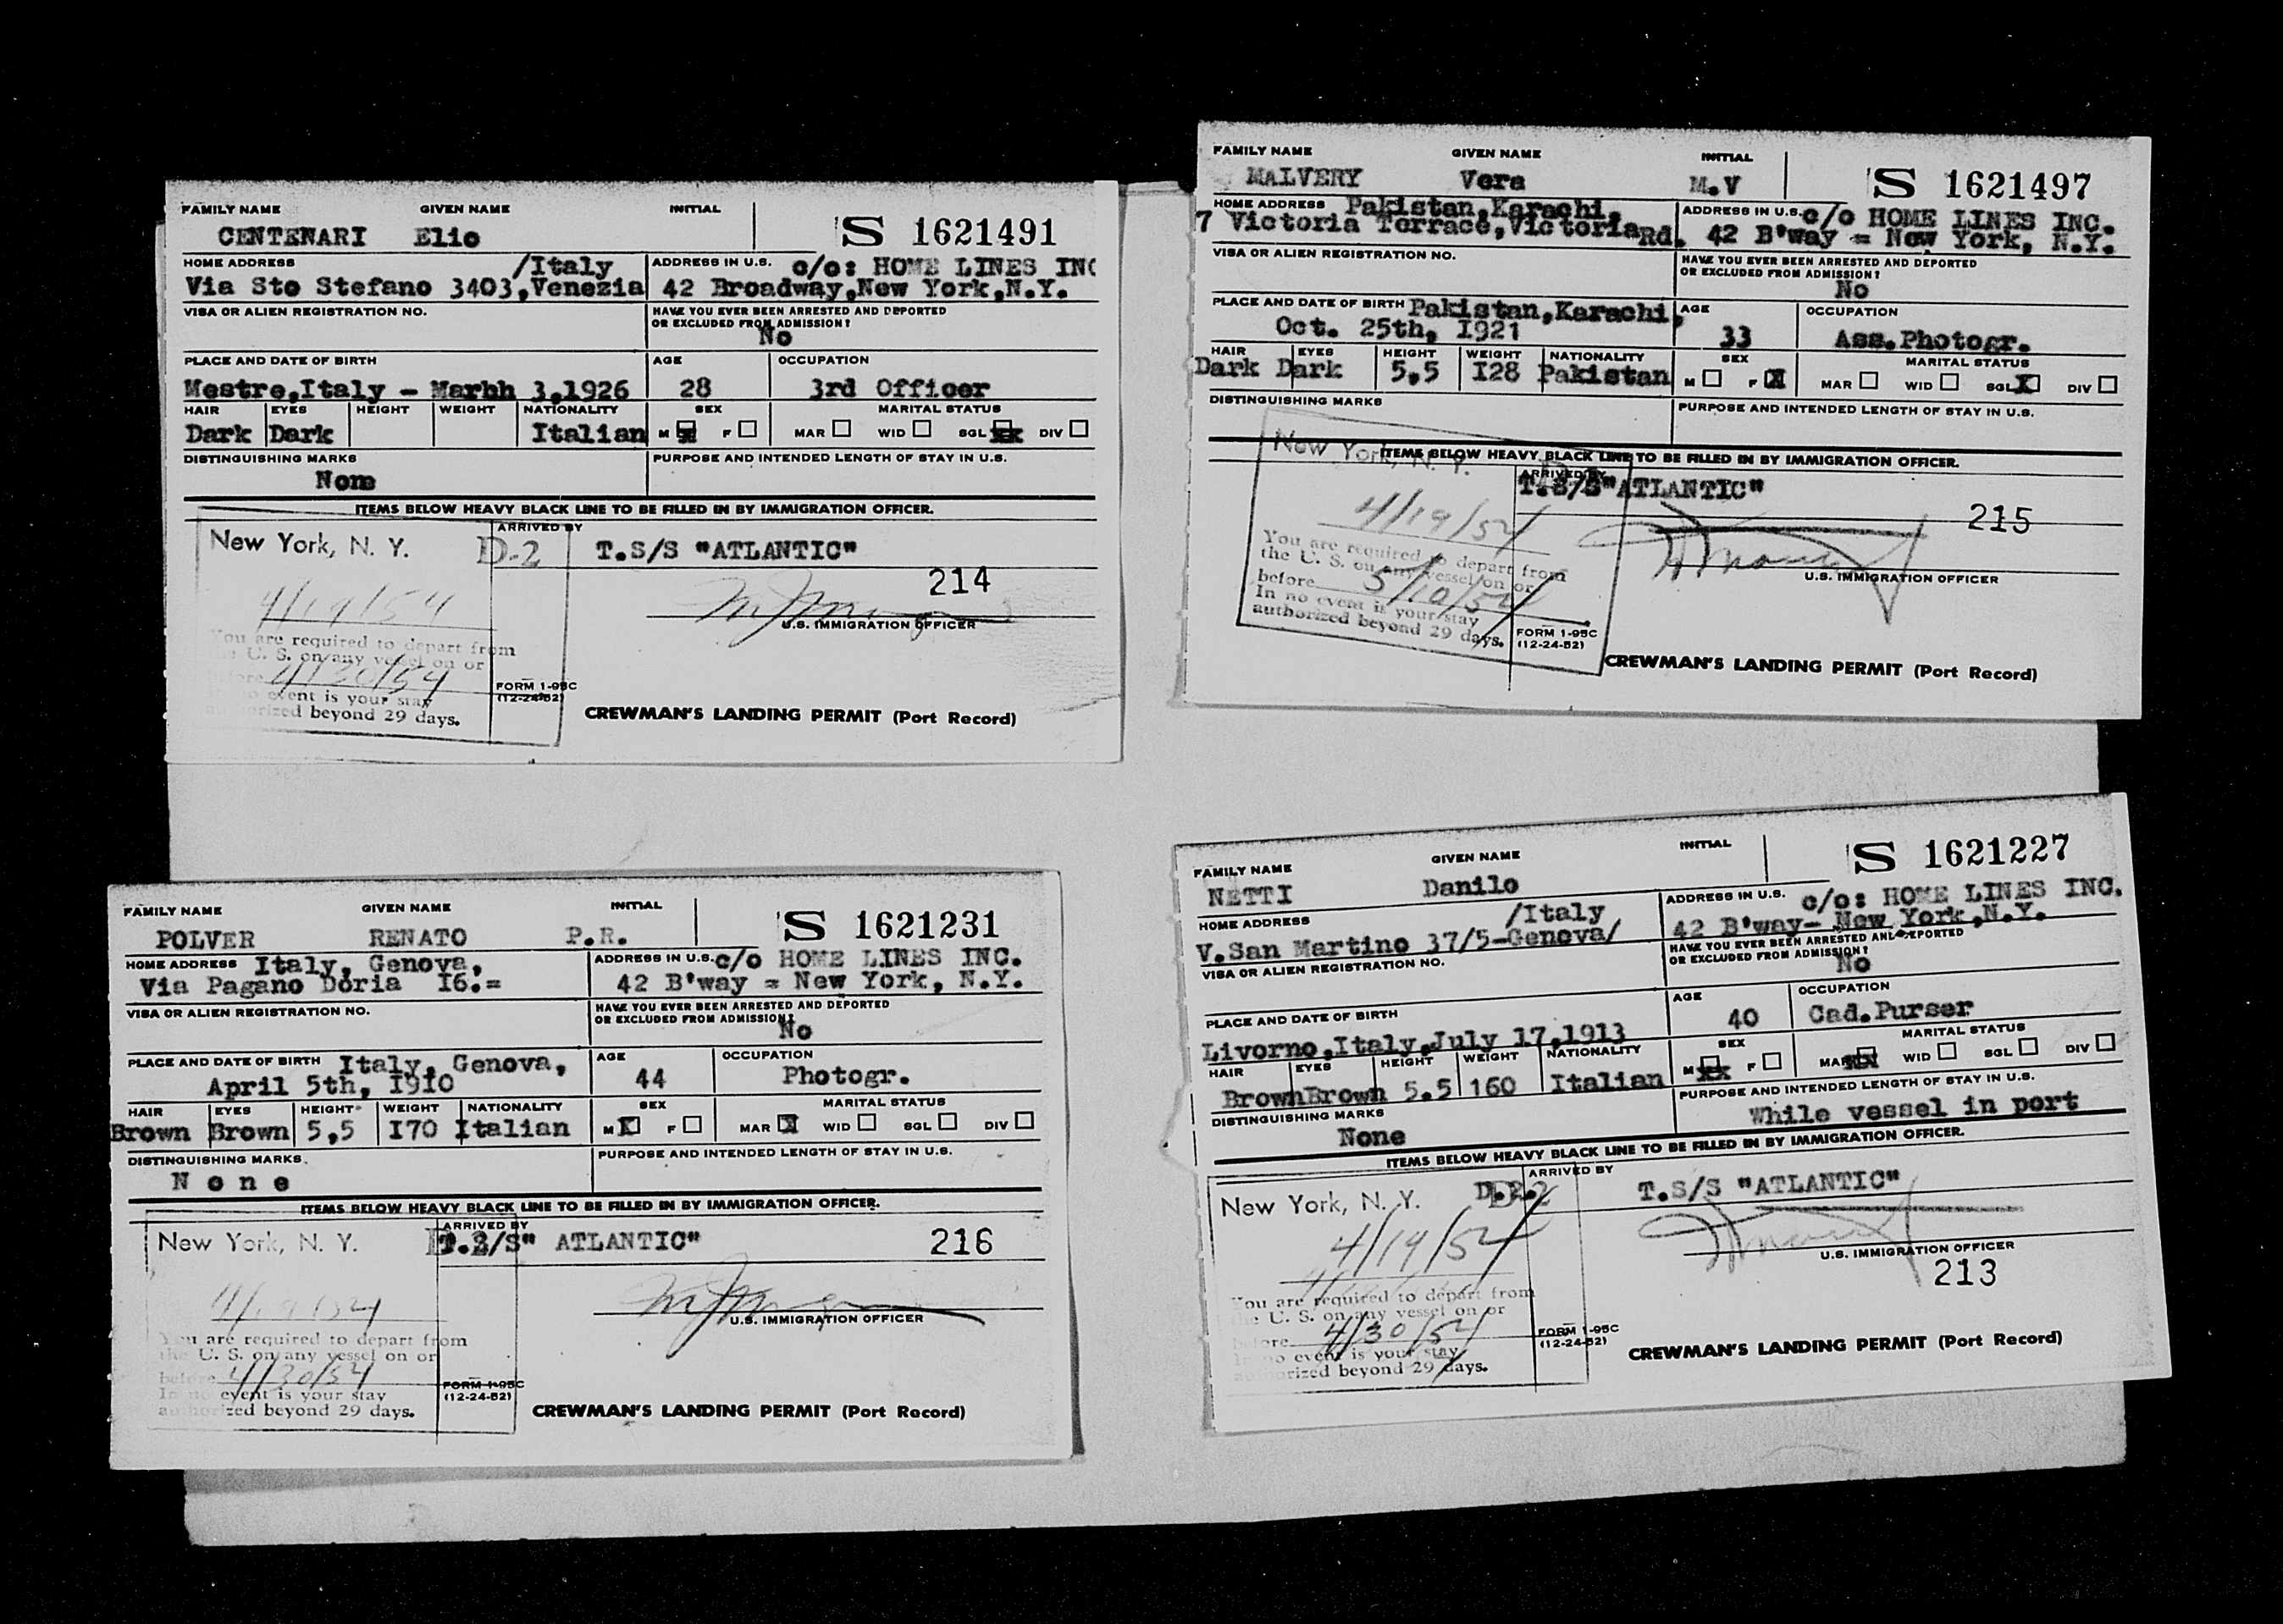 FAMILY NAME GIVEN NAME INITIAL
CENTENARI Elio S 1621491
HOME ADDRESS /Italy ADDRESS IN U.S. c/o: HOME LINES INC
Via Sto Stefano 3403,Venezia 42 Broadway,New York,N.Y.
VISA OR ALIEN REGISTRATION NO. HAVE YOU EVER BEEN ARRESTED AND DEPORTED
OR EXCLUDED FROM ADMISSION?
No
PLACE AND DATE OF BIRTH AGE OCCUPATION
Mestre,Italy - Marhh 3,1926 28 3rd Officer
HAIR EYES HEIGHT WEIGHT NATIONALITY SEX MARITAL STATUS
Dark Dark Italian M X F MAR WID SGL XX DIV
DISTINGUISHING MARKS PURPOSE AND INTENDED LENGTH OF STAY IN U.S.
None
ITEMS BELOW HEAVY BLACK LINE TO BE FILLED IN BY IMMIGRATION OFFICER.
ARRIVED BY
New York, N. Y. D-2 T.S/S "ATLANTIC"
214
4/19/54
U.S. IMMIGRATION OFFICER
You are required to depart from
U. S. on any vessel on or
4/30/54
FORM 1-95C
event is your stay (12-24-52)
beyond 29 days.
CREWMAN'S LANDING PERMIT (Port Record)
FAMILY NAME GIVEN NAME INITIAL
MALVERY Vera M.V S 1621497
HOME ADDRESS Pakistan,Karachi, ADDRESS IN U.S. c/o HOME LINES INC.
7 Victoria Terrace,Victoria Rd. 42 B'way = New York, N.Y.
VISA OR ALIEN REGISTRATION NO. HAVE YOU EVER BEEN ARRESTED AND DEPORTED
OR EXCLUDED FROM ADMISSION?
No
PLACE AND DATE OF BIRTH Pakistan,Karachi, AGE OCCUPATION
Oct. 25th, I921 33 Ass.Photogr.
HAIR EYES HEIGHT WEIGHT NATIONALITY SEX MARITAL STATUS
Dark Dark 5,5 I28 Pakistan M F X MAR WID SGL X DIV
DISTINGUISHING MARKS PURPOSE AND INTENDED LENGTH OF STAY IN U.S.
ITEMS BELOW HEAVY BLACK LINE TO BE FILLED IN BY IMMIGRATION OFFICER.
New York, N. Y. ARRIVED BY
T.S/S"ATLANTIC"
215
4/19/54
You are required to depart from
the U. S. on any vessel on or
before 5/10/54
In no event is your stay
authorized beyond 29 days.
U.S. IMMIGRATION OFFICER
FORM 1-95C
(12-24-52)
CREWMAN'S LANDING PERMIT (Port Record)
FAMILY NAME GIVEN NAME INITIAL
POLVER RENATO P.R. S 1621231
HOME ADDRESS Italy, Genova, ADDRESS IN U.S. c/o HOME LINES INC.
Via Pagano Doria I6.= 42 B'way = New York, N.Y.
VISA OR ALIEN REGISTRATION NO. HAVE YOU EVER BEEN ARRESTED AND DEPORTED
OR EXCLUDED FROM ADMISSION?
No
PLACE AND DATE OF BIRTH Italy, Genova, AGE OCCUPATION
April 5th, I9I0 44 Photogr.
HAIR EYES HEIGHT WEIGHT NATIONALITY SEX MARITAL STATUS
Brown Brown 5,5 I70 Italian M X F MAR X WID SGL DIV
DISTINGUISHING MARKS PURPOSE AND INTENDED LENGTH OF STAY IN U.S.
N o n e
ITEMS BELOW HEAVY BLACK LINE TO BE FILLED IN BY IMMIGRATION OFFICER.
ARRIVED BY
New York, N. Y. T.S/S" ATLANTIC" 216
4/19/54
U.S. IMMIGRATION OFFICER
You are required to depart from
the U. S. on any vessel on or
before 4/30/54
In no event is your stay
authorized beyond 29 days.
FORM 1-95C
(12-24-52)
CREWMAN'S LANDING PERMIT (Port Record)
FAMILY NAME GIVEN NAME INITIAL
NETTI Danilo S 1621227
HOME ADDRESS /Italy ADDRESS IN U.S. c/o: HOME LINES INC.
V.San Martino 37/5-Genova/ 42 B'way- New York,N.Y.
VISA OR ALIEN REGISTRATION NO. HAVE YOU EVER BEEN ARRESTED AND DEPORTED
OR EXCLUDED FROM ADMISSION?
No
PLACE AND DATE OF BIRTH AGE OCCUPATION
Livorno,Italy,July 17,1913 40 Cad.Purser
HAIR EYES HEIGHT WEIGHT NATIONALITY SEX MARITAL STATUS
Brown Brown 5.5 160 Italian M XX F MAR XXX WID SGL DIV
DISTINGUISHING MARKS PURPOSE AND INTENDED LENGTH OF STAY IN U.S.
None While vessel in port
ITEMS BELOW HEAVY BLACK LINE TO BE FILLED IN BY IMMIGRATION OFFICER.
ARRIVED BY
New York, N. Y. D.2. T.S/S "ATLANTIC"
4/19/54
U.S. IMMIGRATION OFFICER
213
You are required to depart from
U. S. on any vessel on or
4/30/54
In no event is your stay
authorized beyond 29 days.
FORM 1-95C
(12-24-52)
CREWMAN'S LANDING PERMIT (Port Record)